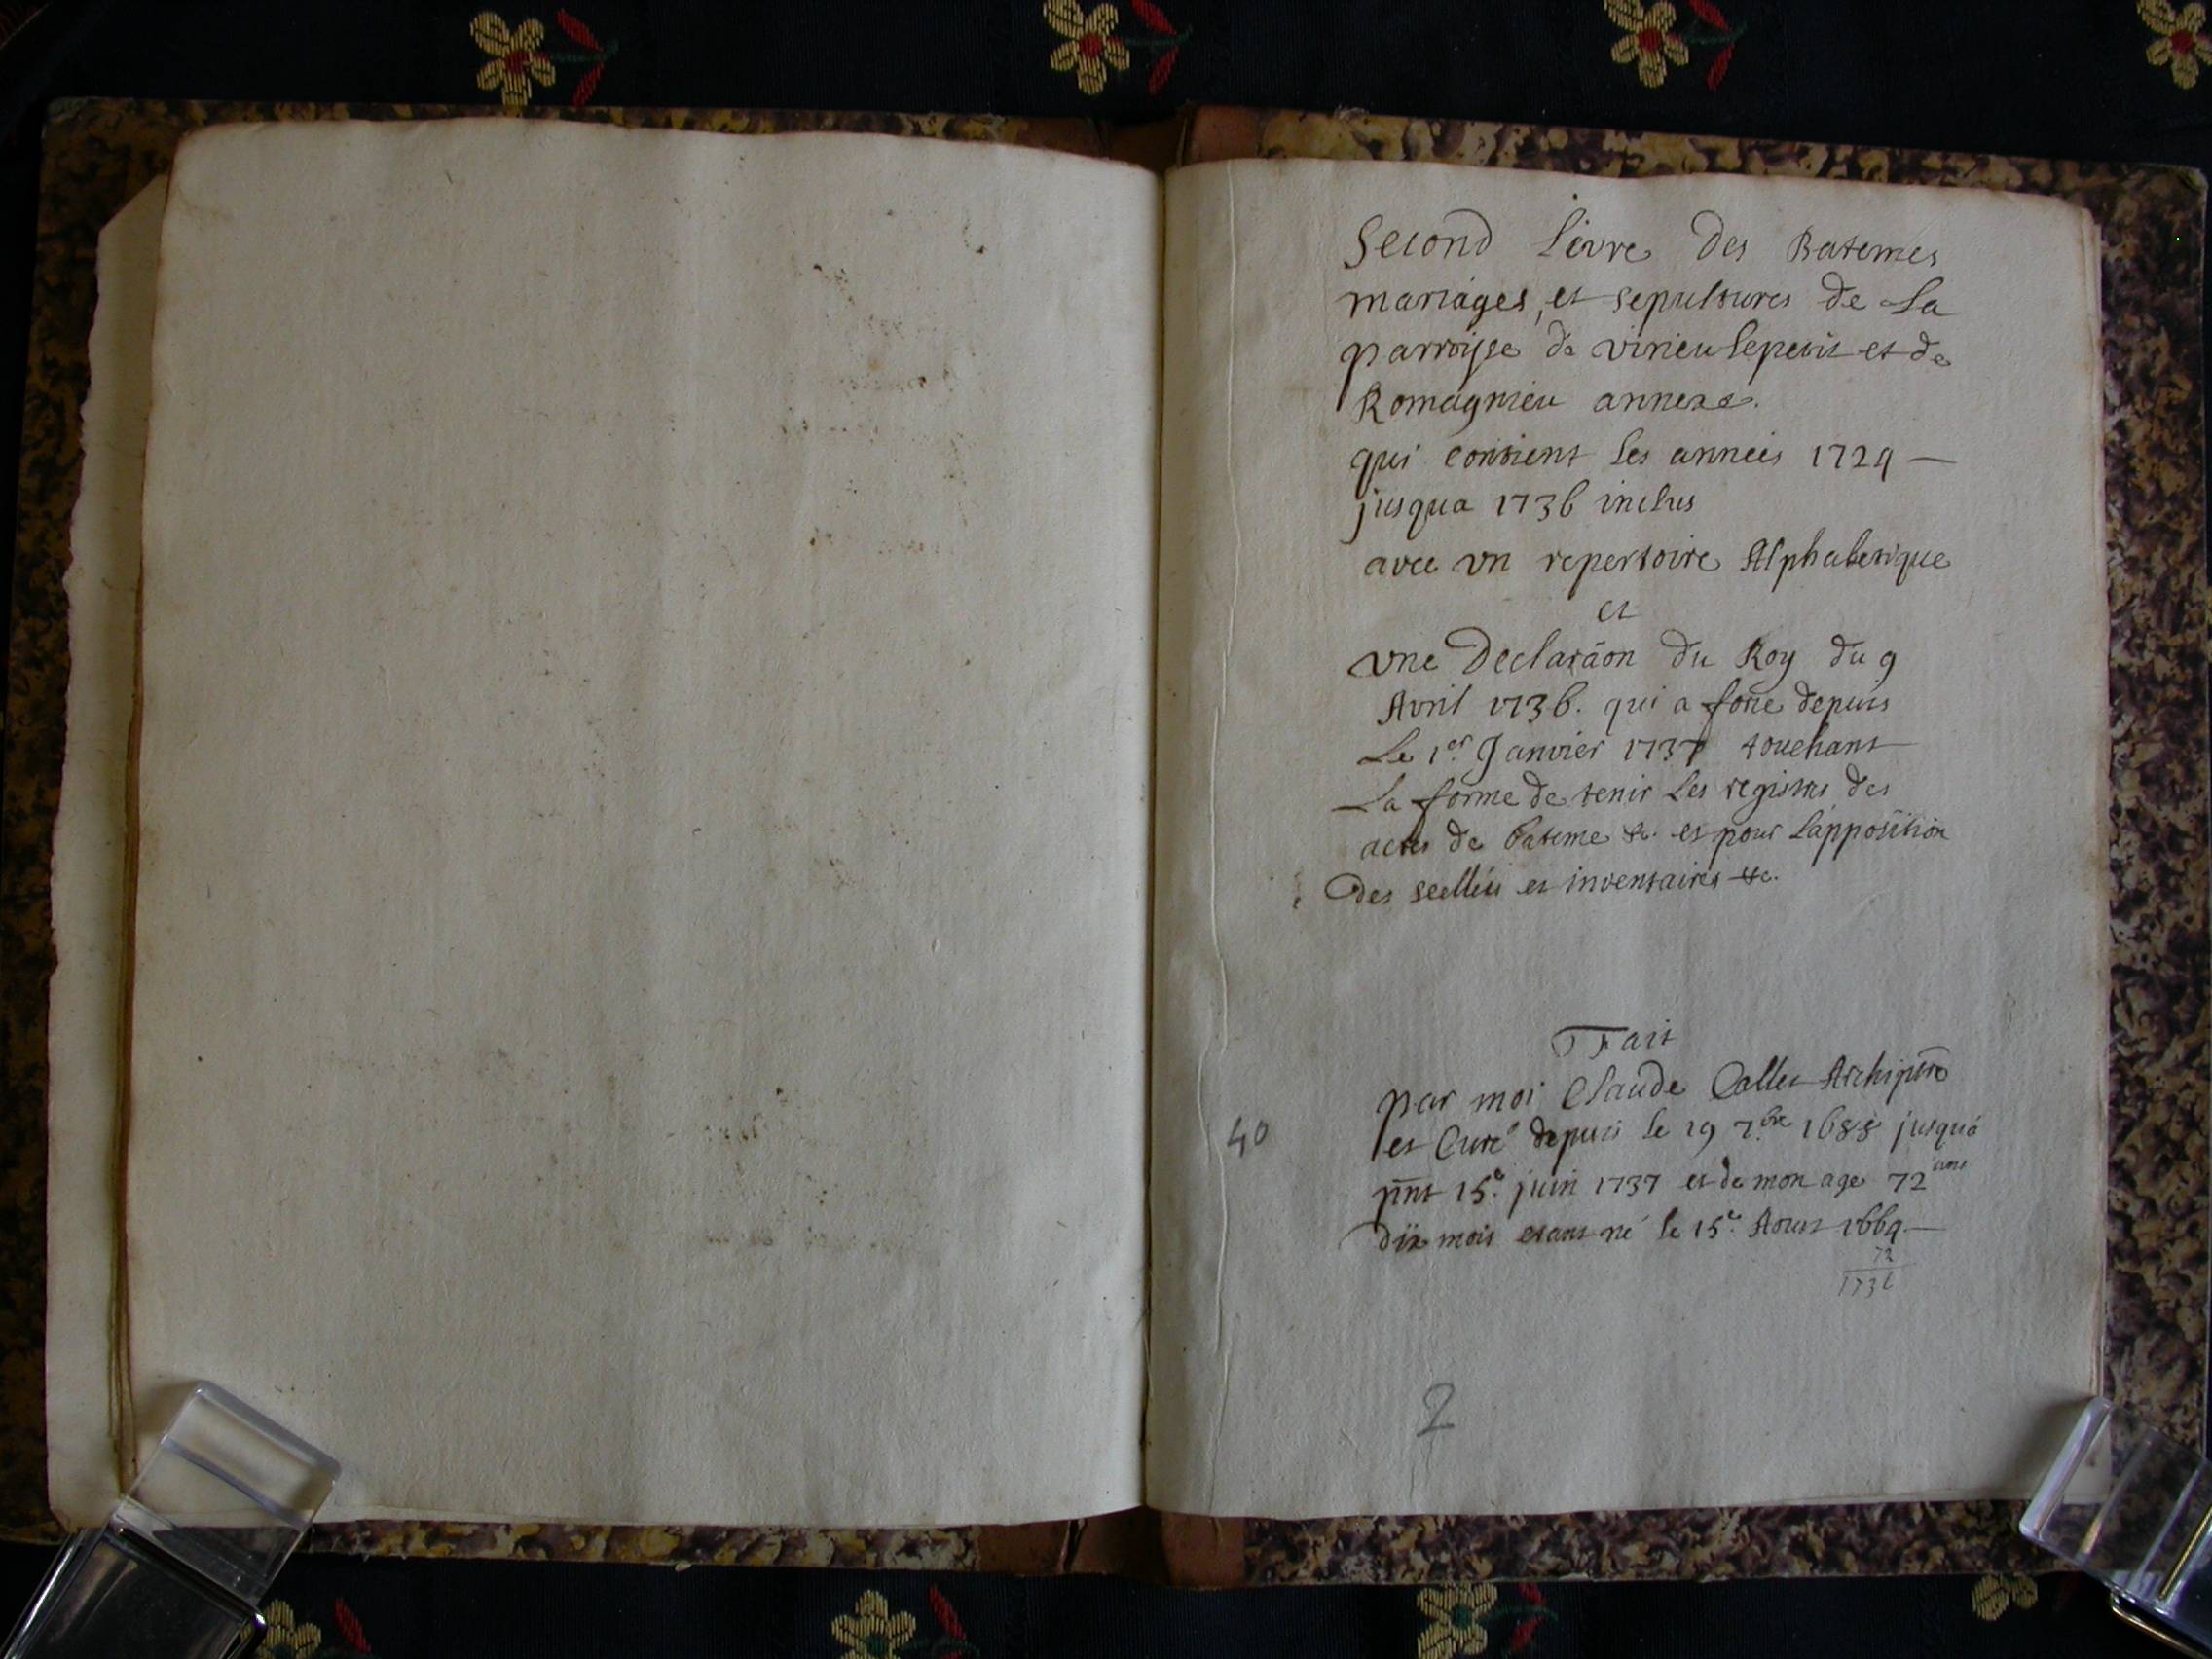 Second Livre des Batemes
mariages, et sepultures de La
parroisse de virieu le petit et de
Romagnieu annexe.
qui contient les années 1729 —
jusqua 1736 inclus
avec vn repertoire Alphabetique
et
vne Declaraõn du Roy du 9
Avril 1736. qui a force depuis
Le 1er Janvier 1737 touchant
La forme de tenir les registres des
actes de bateme &c. et pour L'apposition
des scellés et inventaires &c.
Fait
par moi Claude Collet Archiptre
et Curé depuis le 19 7.bre 1688 jusqu'a
pnt 15.e juin 1737 et de mon age 72 ans
dix mois etant né le 15.e Aoust 1664 —
72
1736
40
2